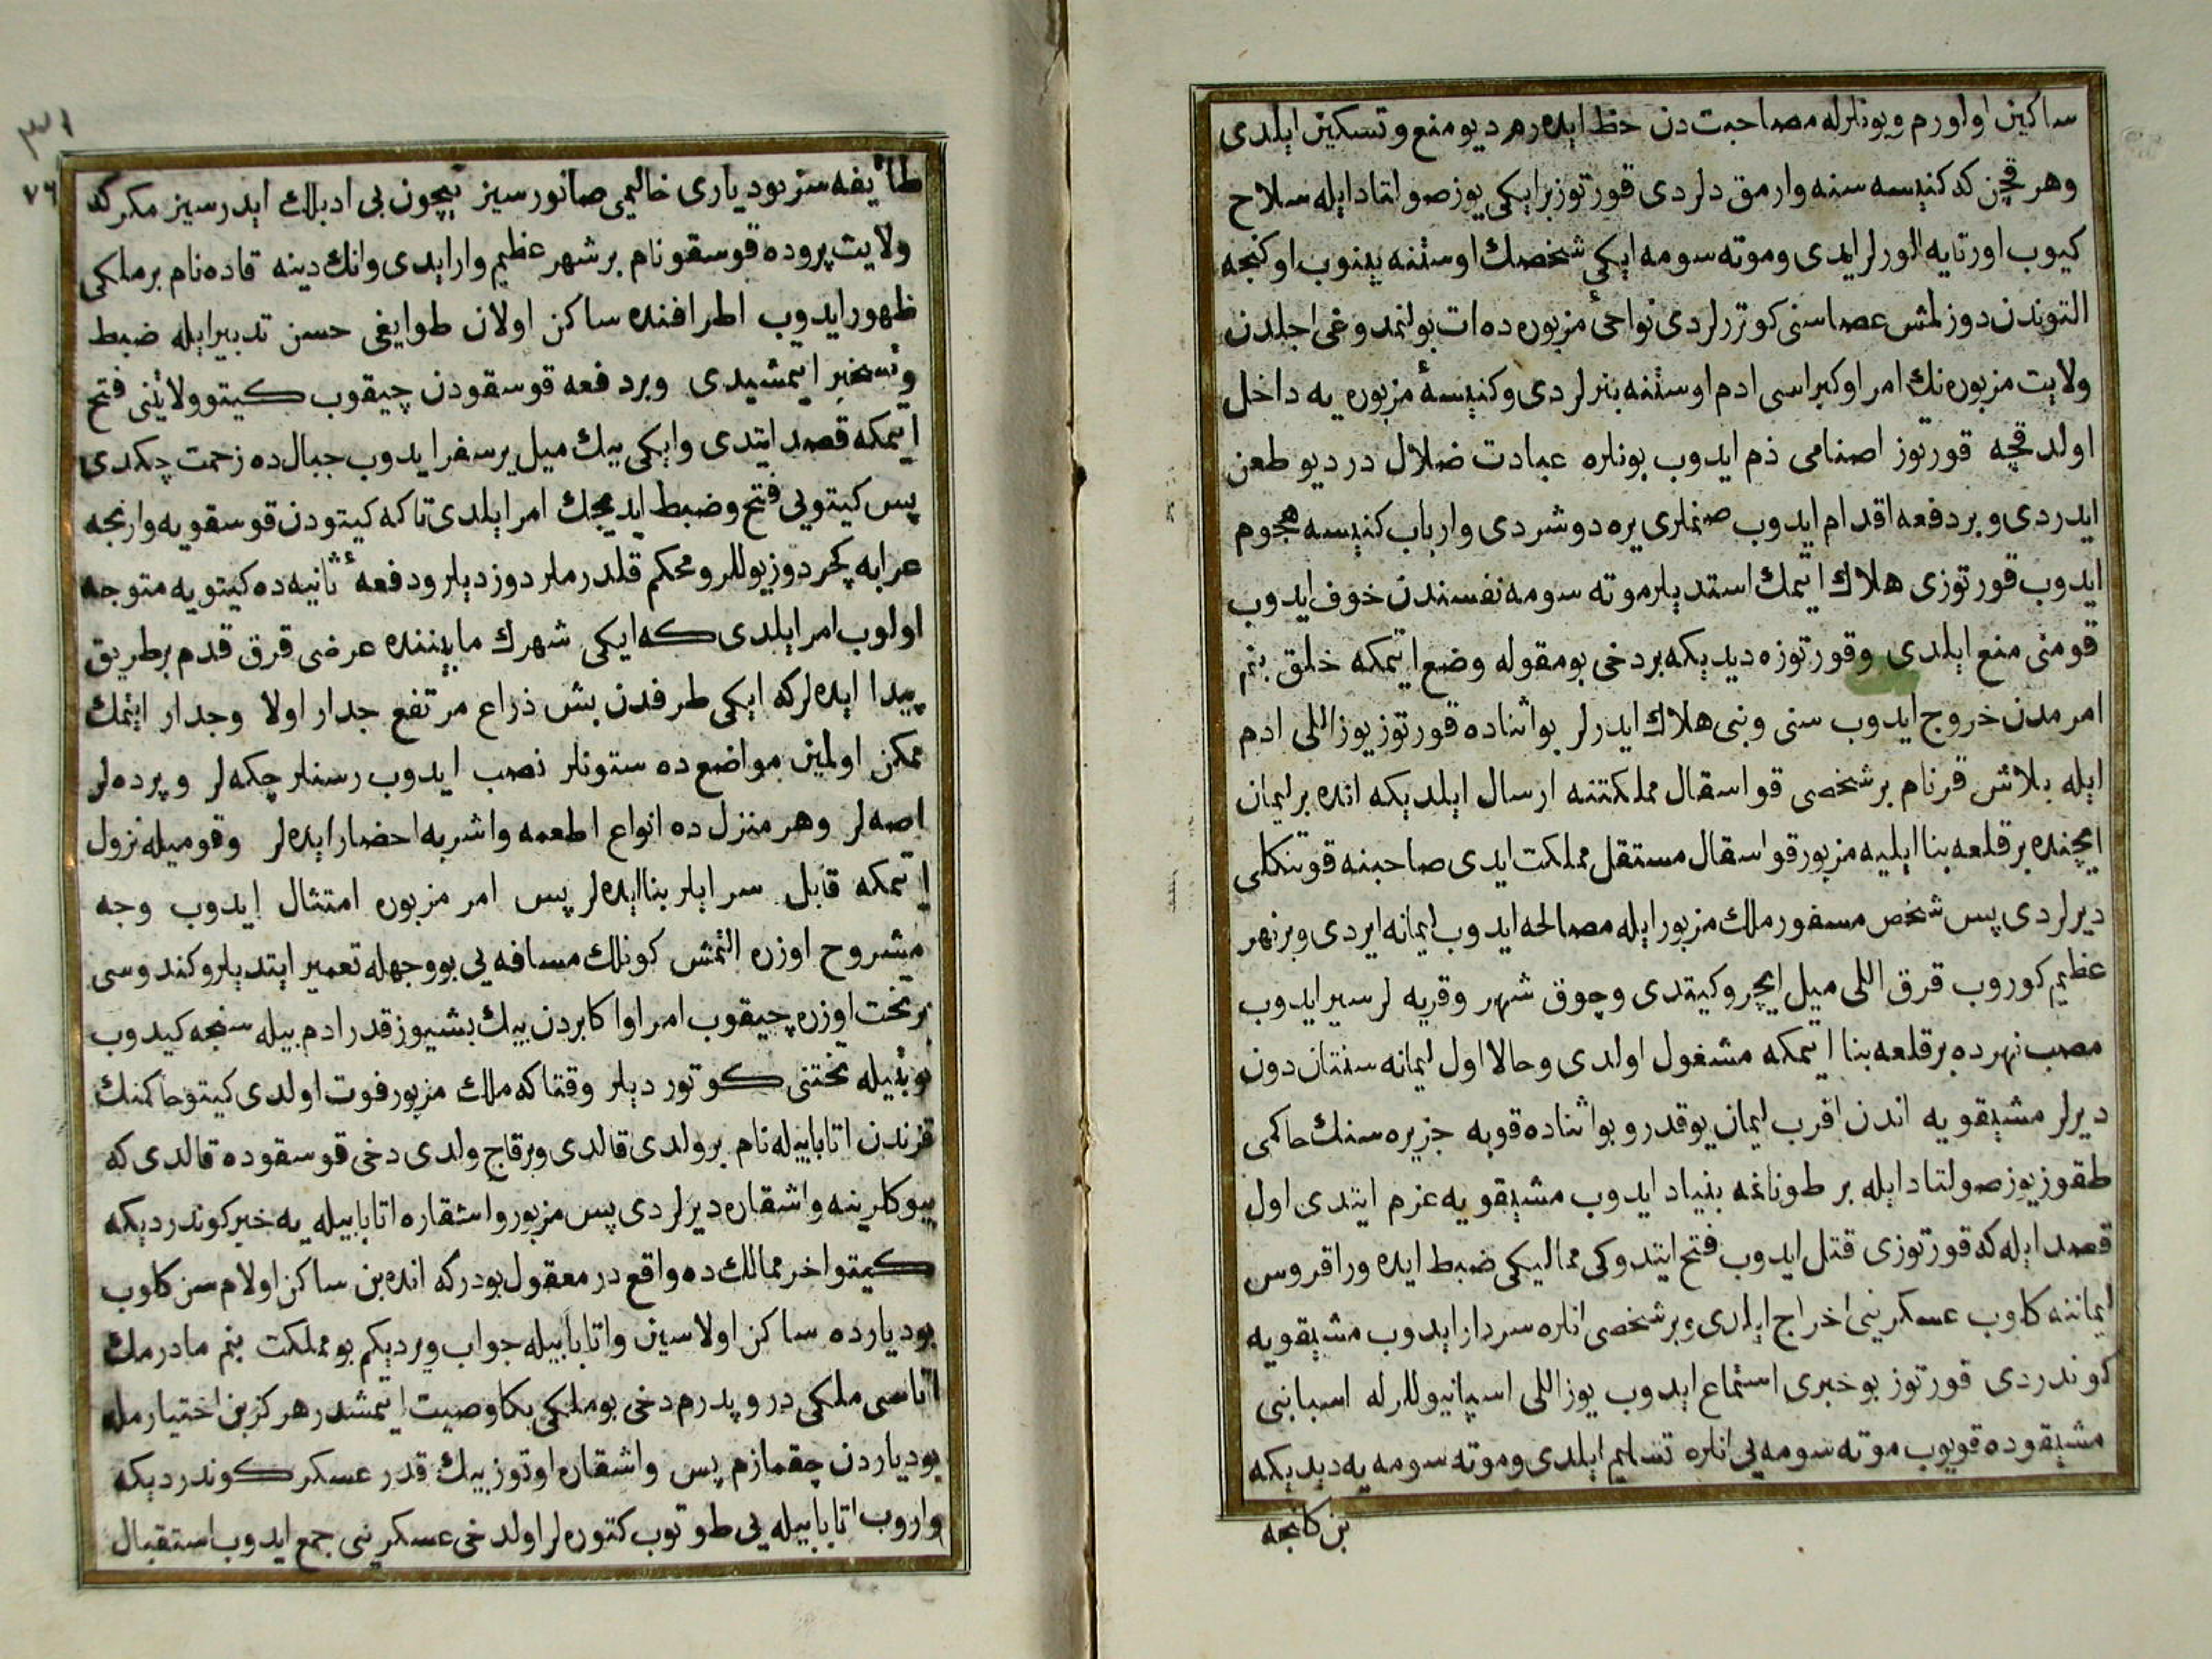 ساكین اولورم وبونلرله مصاحبت دن حظ ایده رم دیو منع وتسكین ایلدی
وهر قچن كه كنیسه سنه وارمق دلردی قورتوز بر ایكی یوز صولتادایله سلاح
كیوب اورتایه الورلر ایدی وموته سومه ایكی شخصك اوستنه بینوب اوكنجه
التوندن دوزلمش عصاسنی كوتررلردی نواحئ مزبوره ده ات بولنمدوغی اجلدن
ولایت مزبوره نك امرا وكبراسی ادم اوستنه بنرلردی وكنیسۀ مزبوره یه داخل
اولدقچه قورتوز اصنامی ذم ایدوب بونلره عبادت ضلال در دیو طعن
ایدردی وبر دفعه اقدام ایدوب صنملری یره دوشردی وارباب كنیسه هجوم
ایدوب قورتوزی هلاك اتمك استدیلر موته سومه نفسندن خوف ایدوب
قومنی منع ایلدی وقورتوزه دیدیكه بر دخی بو مقوله وضع اتمكه خلق بنم
امرمدن خروج ایدوب سنی وبنی هلاك ایدرلر بو اثناده قورتوز یوز اللی ادم
ایله بلاش قز نام بر شخصی قواسقال مملكتنه ارسال ایلدیكه انده بر لیمان
ایچنده بر قلعه بنا ایلیه مزبور قواسقال مستقل مملكت ایدی صاحبنه قوتنكلی
دیرلردی پس شخص مسفور ملك مزبور ایله مصالحه ایدوب لیمانه ایردی وبر نهر
عظیم كوروب قرق اللی میل ایچرو كیتدی وچوق شهر وقریه لر سیر ایدوب
مصب نهرده بر قلعه بنا اتمكه مشغول اولدی وحالا اول لیمانه سنتان دون
دیرلر مشیقویه اندن اقرب لیمان یوقدر وبو اثناده قوبه جزیره سنك حاكمی
طقوز یوز صولتادایله بر طوناغه بنیاد ایدوب مشیقویه عزم ایتدی اول
قصد ایله كه قورتوزی قتل ایدوب فتح ایتدوكی ممالیكی ضبط ایده وراقروس
لیماننه كلوب عسكرینی اخراج ایلدی وبر شخصی انلره سردار ایدوب مشیقویه
كوندردی قورتوز بو خبری استماع ایدوب یوز اللی اسپانیوللرله اسبابنی
مشیقوده قویوب موته سومه یی انلره تسلیم ایلدی وموته سومه یه دیدیكه
بن كلنجه
٧٦
طائفه سز بو دیاری خالیمی صانورسیز نیچون بی ادبلك ایدرسیز مكر كه
ولایت پروده قوسقو نام بر شهر عظیم وار ایدی وانك دینه قاده نام بر ملكی
ظهور ایدوب اطرافنده ساكن اولان طوایفی حسن تدبیر ایله ضبط
وتسخیر اتمشیدی وبر دفعه قوسقودن چیقوب كیتو ولایتنی فتح
اتمكه قصد ایتدی وایكی بیك میل یر سفر ایدوب جبال ده زحمت چكدی
پس كیتویی فتح وضبط ایدیجك امر ایلدی تا كه كیتودن قوسقویه وارنجه
عرابه كچر دوز یوللر ومحكم قلدرملر دوزدیلر ودفعۀ ثانیه ده كیتویه متوجه
اولوب امر ایلدی كه ایكی شهرك مابیننده عرضی قرق قدم بر طریق
پیدا ایده لر كه ایكی طرفدن بش ذراع مرتفع جدار اولا وجدار ایتمك
ممكن اولمین مواضع ده ستونلر نصب ایدوب رسنلر چكه لر وپرده لر
اصه لر وهر منزل ده انواع اطعمه واشربه احضار ایده لر وقومیله نزول
اتمكه قابل سرایلر بنا ایده لر پس امر مزبوره امتثال ایدوب وجه
مشروح اوزره التمش كونلك مسافه یی بو وجهله تعمیر ایتدیلر وكندوسی
بر تخت اوزره چیقوب امرا واكابردن بیك بشیوز قدر ادم بیله سنجه كیدوب
نوبتیله تختنی كوتوردیلر وقتا كه ملك مزبور فوت اولدی كیتو حاكمنك
قزندن اتابابیله نام بر ولدی قالدی وبر قاچ ولدی دخی قوسقوده قالدی كه
بیوكلرینه واشقاره دیرلردی پس مزبور واشقاره اتابابیله یه خبر كوندردیكه
كیتو اخر ممالك ده واقع در معقول بودر كه انده بن ساكن اولام سن كلوب
بو دیارده ساكن اولاسین واتابابیله جواب ویردیكم بو مملكت بنم مادرمك
اتاسی ملكی در وپدرم دخی بو ملكی بكا وصیت اتمشدر هركز بن اختیارمله
بو دیاردن چقمازم پس واشقاره اوتوز بیك قدر عسكر كوندردیكه
واروب اتابابیله یی طوتوب كتوره لر اول دخی عسكرینی جمع ایدوب استقبال